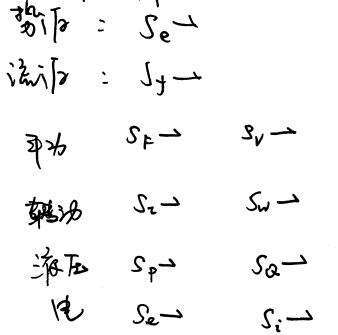 势源 : Se⇀
流源 : Sf⇀
平动 SF⇀ SV⇀
转动 Sτ⇀ Sω⇀
液压 Sp⇀ SQ⇀
电 Se⇀ Si⇀